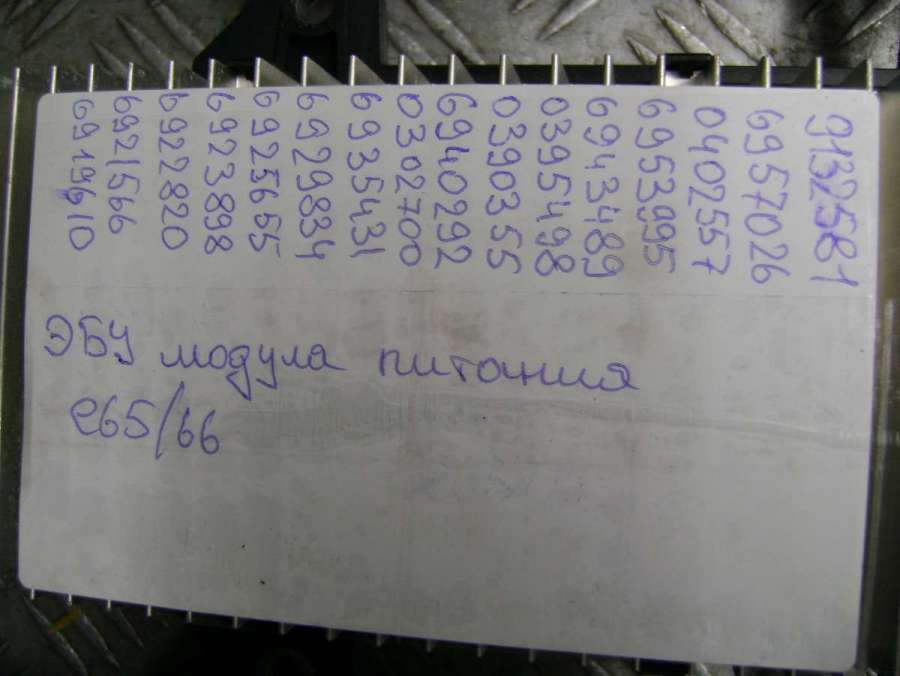 6919610
6921566
6922820
6923898
6925655
6929834
6935431
0302700
6940292
0390355
0395498
6943489
6953995
0402557
6957026
9132581
ЭБУ модула питания
e65/66